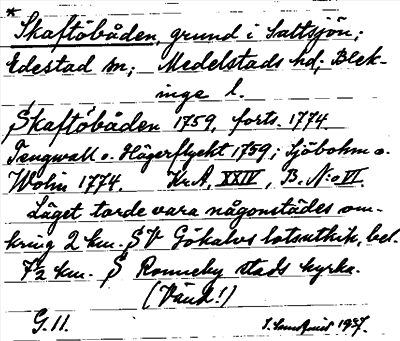 *
Skaftöbåden, grund i Saltsjön;
Edestad sn; Medelstads hd; Blek-
inge l.
Skaftöbåden 1759, forts. 1774
Tengwall o. Hägerflycht 1759; Sjöbohm o.
Wolin 1774. Kr.A. XXIV, B. N:o VI.
Läget torde vara någonstädes om-
kring 2 km. SV Gökalvs lotsutkik, bel.
7½ km. S Ronneby stads kyrka.
(Vänd!)
G. 11. 1937.